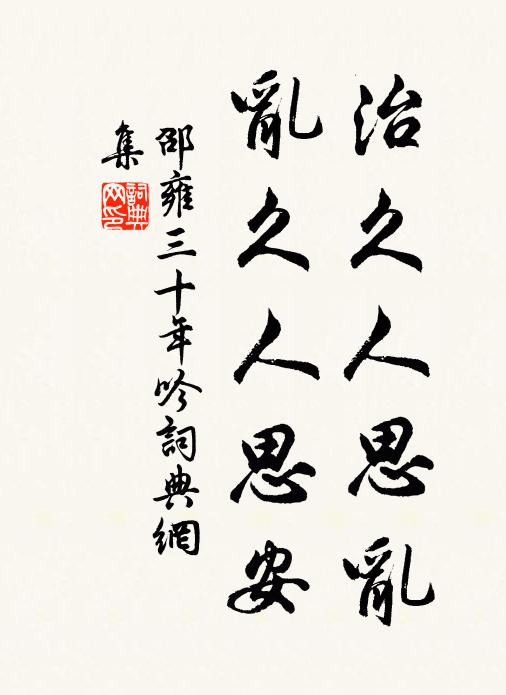 治久人思亂
亂久人思安
邵雍三十年吟詞典網
集
詞典
网印